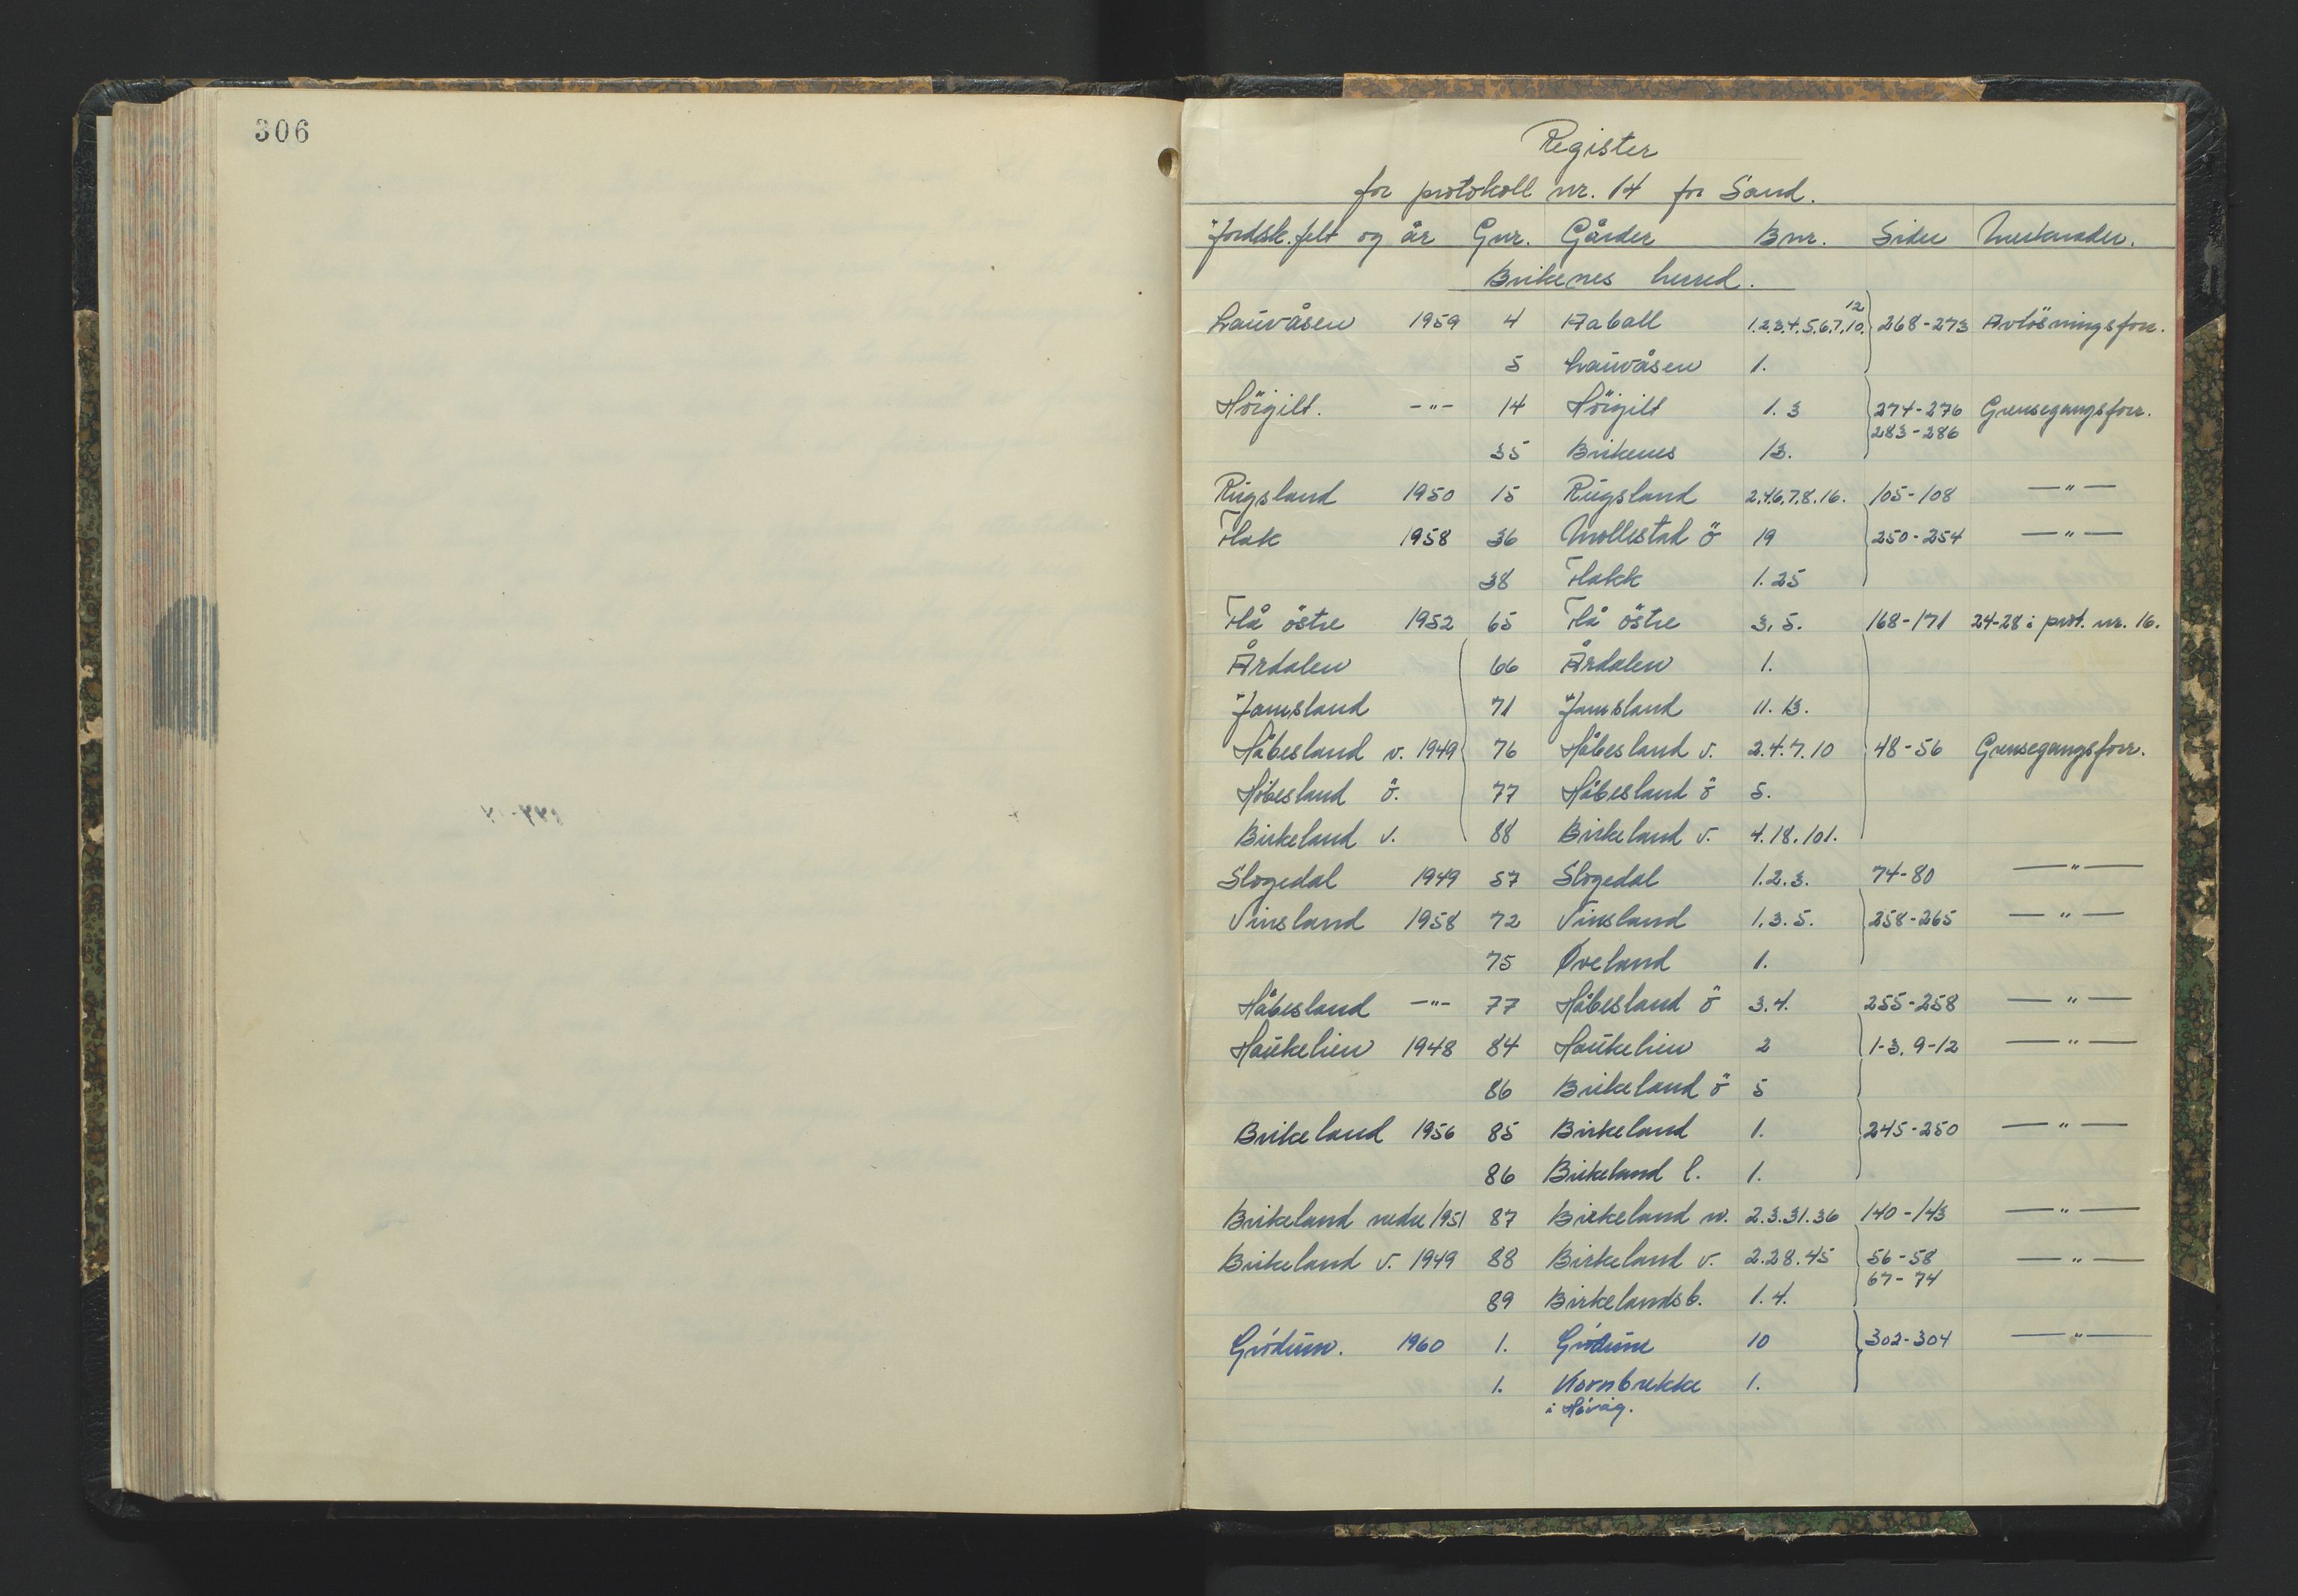 306
Register
for protokoll nr. 14 for Sand.
Jordsk. felt og år Gnr. Gårder Bnr. Sider Merknader.
Birkenes herred.
Lauvåsen 1959 4 Haball 1.2.3.4.5.6.7.10. 12 268-273 Avlösningsforr.
5 Lauvåsen 1.
Höigilt. -"- 14 Höigilt 1.3 274-276 Grensegangsforr.
283-286
35 Birkenes 13.
Rugsland 1950 15 Rugsland 2.4.6.7.8.16. 105-108 -"-
Flak 1958 36 Mollestad ö 19 250-254 -"-
38 Flakk 1.25
Flå östre 1952 65 Flå östre 3.5. 168-171 24-28 i prot. nr. 16.
Årdalen 66 Årdalen 1.
Jamsland 71 Jamsland 11.13.
Håbesland v. 1949 76 Håbesland v. 2.4.7.10 48-56 Grensegangsforr.
Håbesland ö. 77 Håbesland ö 5.
Birkeland v. 88 Birkeland v. 4.18.101.
Slogedal 1949 57 Slogedal 1.2.3. 74-80 -"-
Vinsland 1958 72 Vinsland 1.3.5. 258-265 -"-
75 Øveland 1.
Håbesland -"- 77 Håbesland ö 3.4. 255-258 -"-
Haukelien 1948 84 Haukelien 2 1-3. 9-12 -"-
86 Birkeland ö 5
Birkeland 1956 85 Birkeland 1. 245-250 -"-
86 Birkeland l. 1.
Birkeland nedre 1951 87 Birkeland n. 2.3.31.36 140-143 -"-
Birkeland v. 1949 88 Birkeland v. 2.28.45 56-58 -"-
67-74
89 Birkelandsb. 1.4.
Grödum. 1960 1. Grödum 10 302-304 -"-
1. Kornbrekke 1.
i Hövåg.